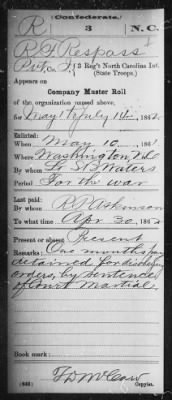 (Confederate.)
R 3 N.C.
R F Respass
Pvt, Co. I, 3 Reg't North Carolina Inf.
(State Troops.)
Appears on
Company Muster Roll
of the organization named above,
for May 1 to July 1st, 1862.
Enlisted:
When May 10, 1861
Where Washington N.C.
By whom Lt S B Waters
Period For the war
Last paid:
By whom R P Askinson
To what time Apr 30, 1862
Present or absent Present
Remarks: One months pay
detained for disobeying
orders, by sentence
of Court Martial
Book mark:
F D McCaw
(642) Copyist.